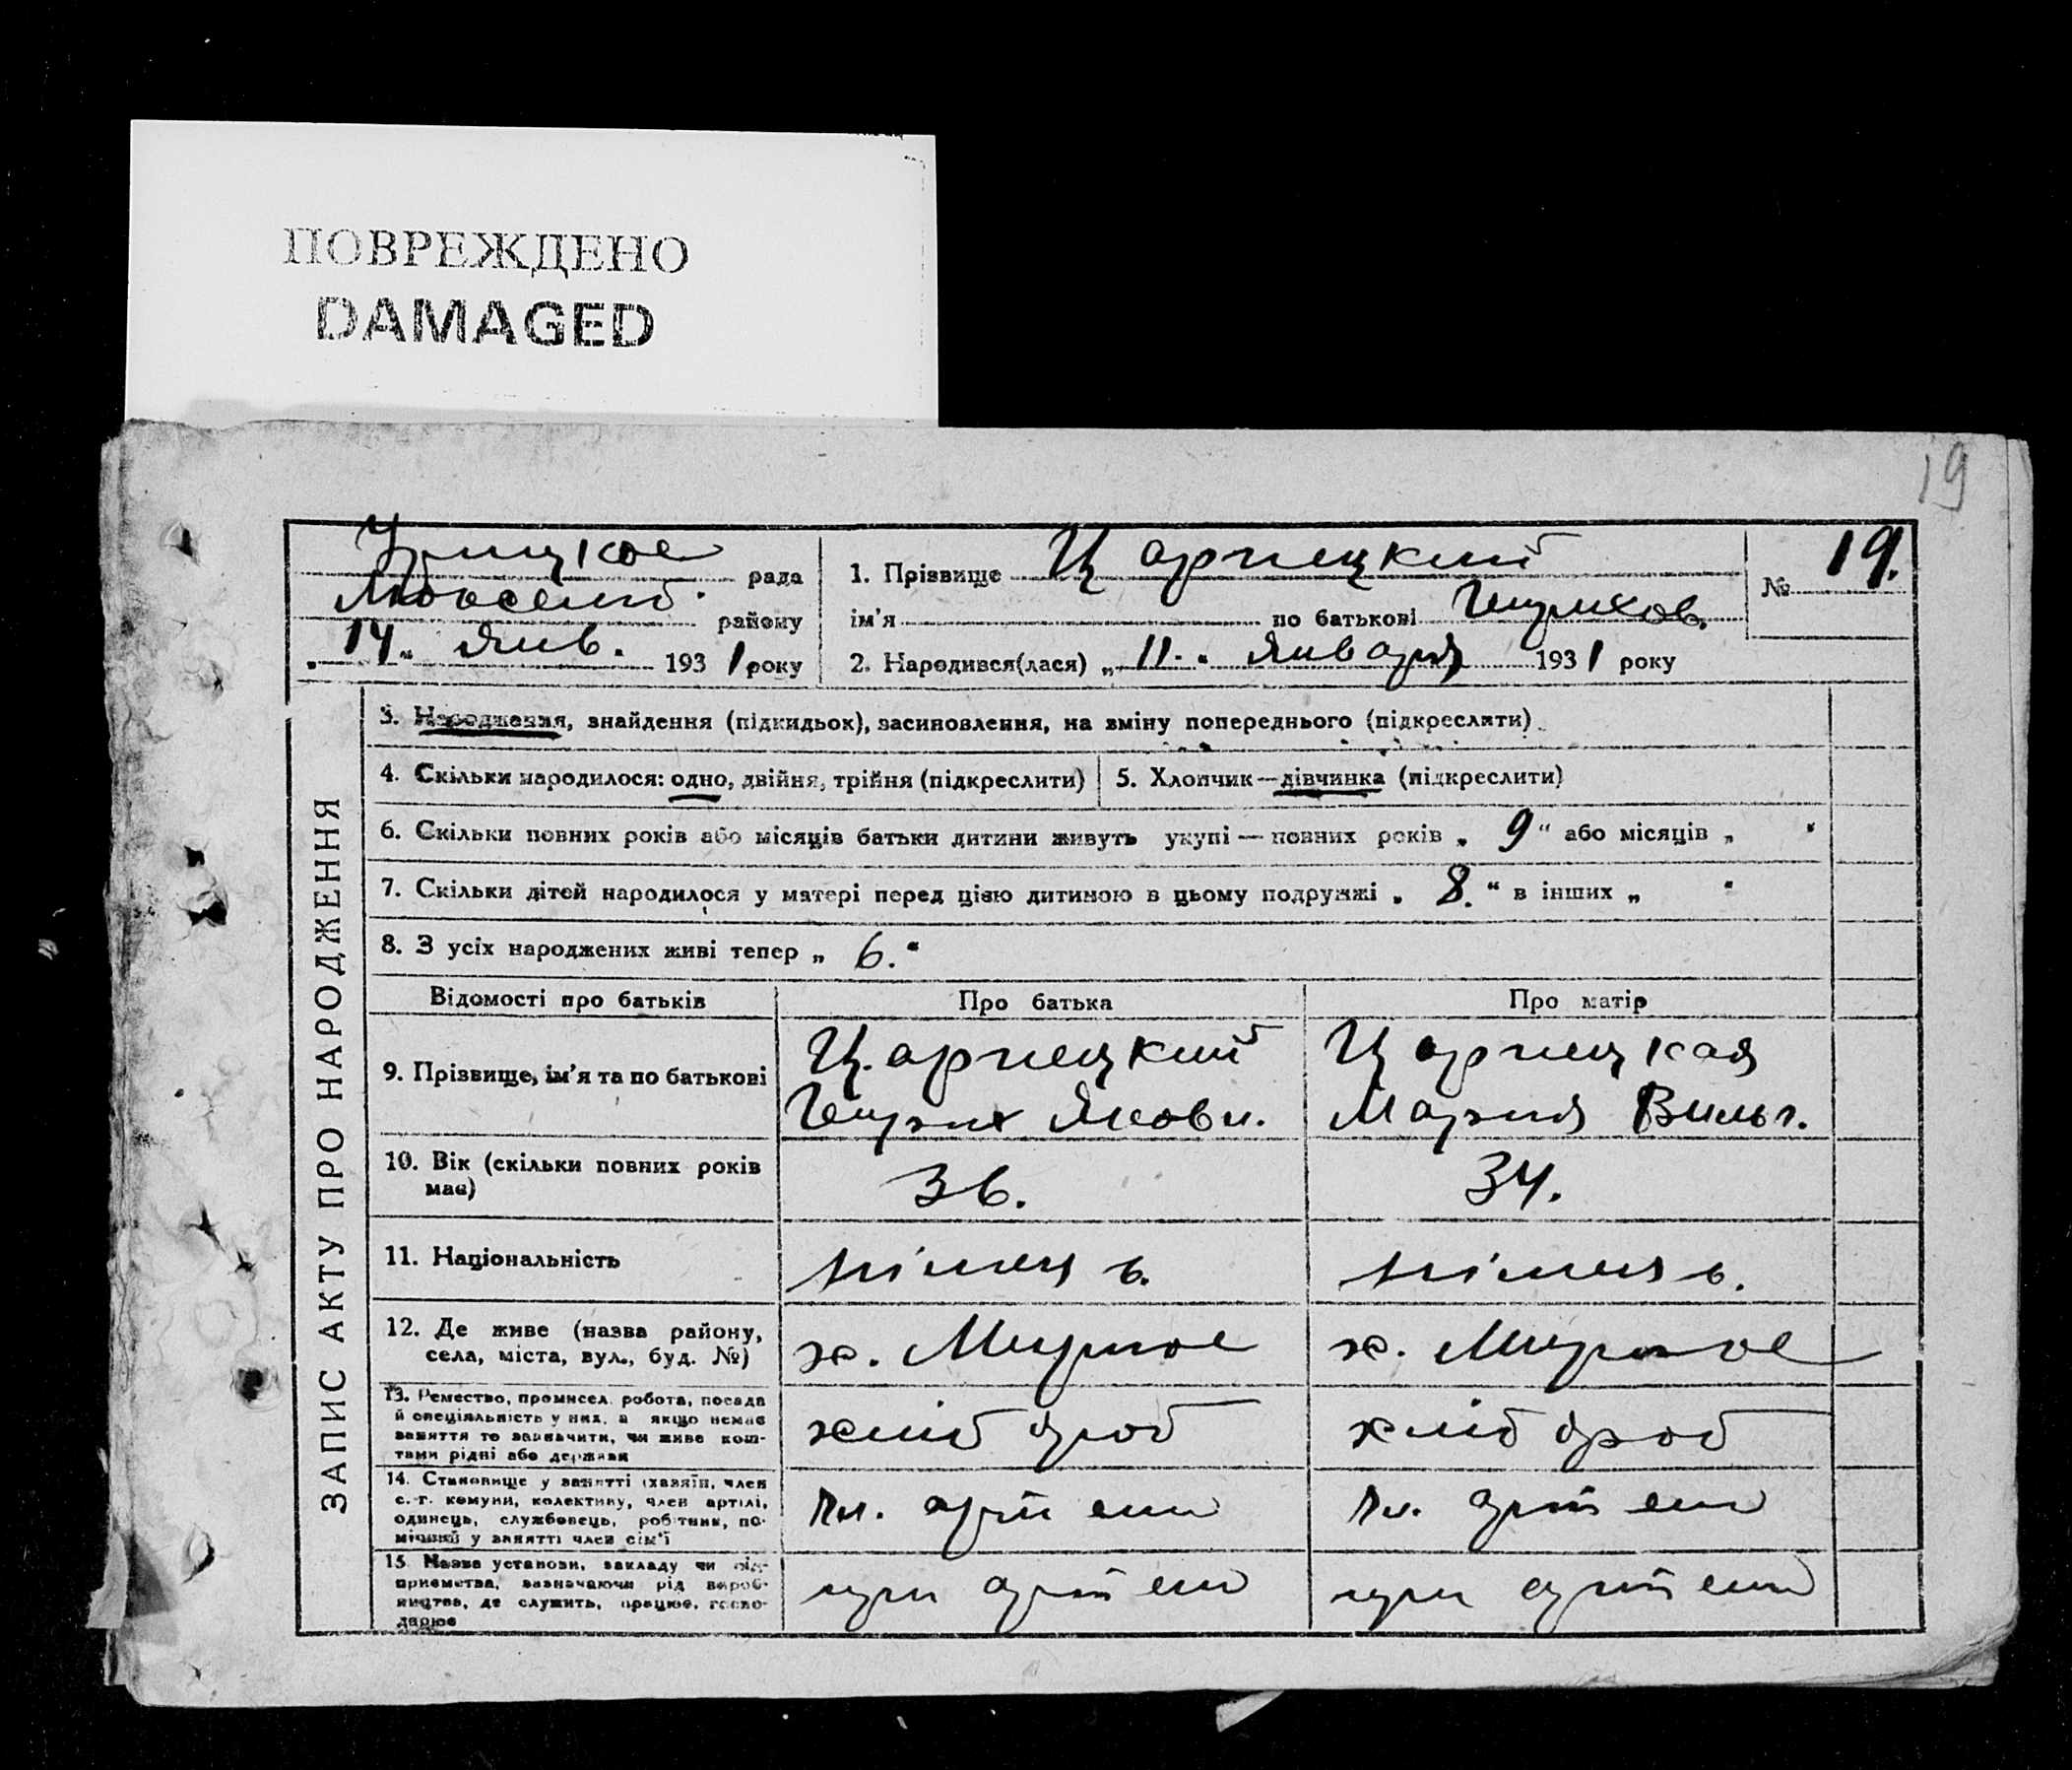 ПОВРЕЖДЕНО
DAMAGED
19
Урицкое рада
району
„14„ Янв. 1931 року
1. Прізвище Царнецкий
№ 19.
ім'я по батькові Генрихов.
2. Народився(лася) „11.„ Января 1931 року
ЗАПИС АКТУ ПРО НАРОДЖЕННЯ
3. Народження, знайдення (підкидьок), засиновлення, на зміну попереднього (підкреслити)
4. Скільки народилося: одно, двійня, трійня (підкреслити)
5. Хлопчик—дівчинка (підкреслити)
6. Скільки повних років або місяців батьки дитини живуть укупі — повних років „ 9 “ або місяців „ “
7. Скільки дітей народилося у матері перед цією дитиною в цьому подружжі „ 8. “ в інших „ “
8. З усіх народжених живі тепер „ 6. “
Відомості про батьків
Про батька
Про матір
9. Прізвище, ім'я та по батькові
Царнецкий
Генрих Яковл.
Царнецкая
Мария Вильг.
10. Вік (скільки повних років
має)
36.
34.
11. Національність
німець.
німець.
12. Де живе (назва району,
села, міста, вул., буд. №)
х. Мирное
х. Мирное
13. Ремество, промисел, робота, посада
й спеціяльність у них, а якщо немає
заняття то зазначити, чи живе кош-
тами рідні або держави
хлібороб
хлібороб
14. Становище у занятті (хазяїн, член
с.-г. комуни, колективу, член артілі,
одинець, службовець, робітник, по-
мічний у занятті член сім'ї
чл. артели
чл. артели
15. Назва установи, закладу чи під-
приємства, зазначаючи рід вироб-
ництва, де служить, працює, госпо-
дарює
при артели
при артели